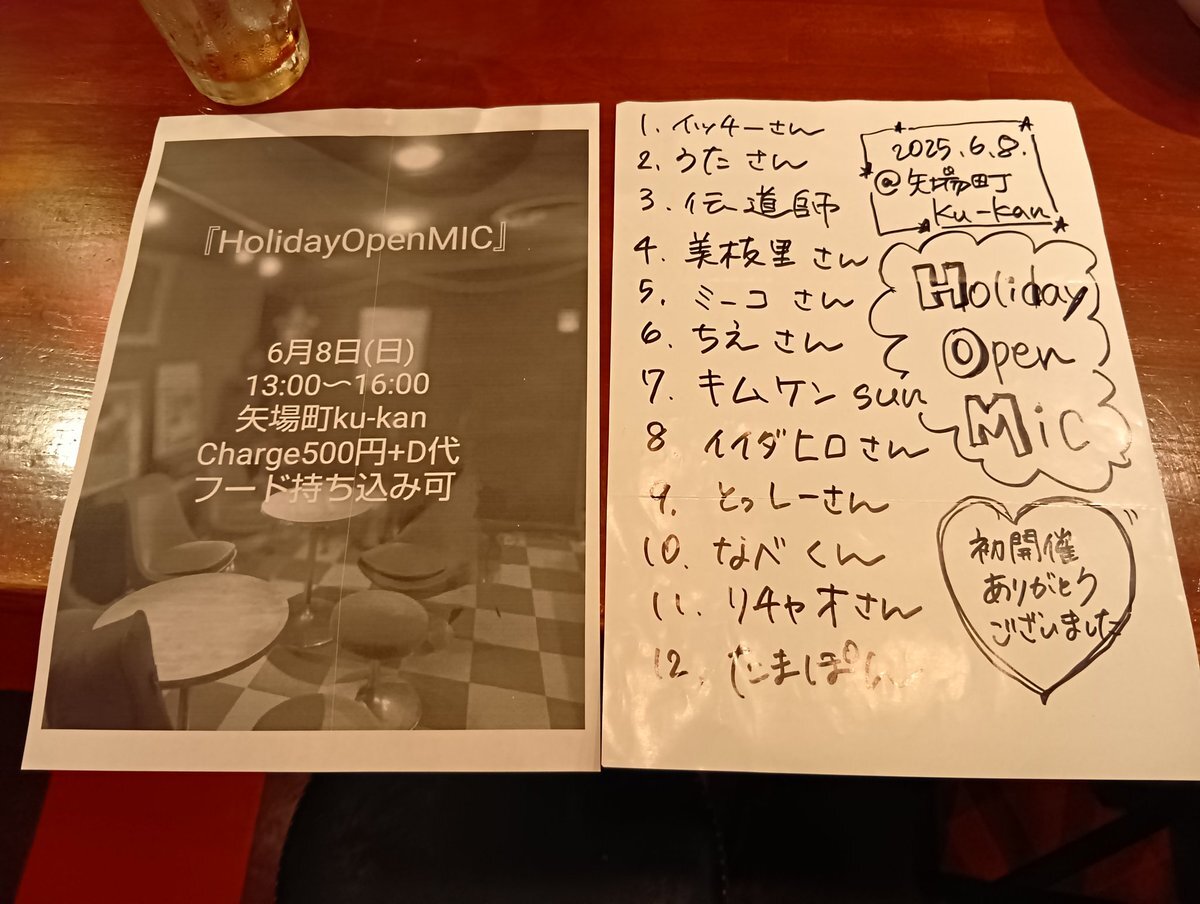 『HolidayOpenMIC』
6月8日(日)
13:00〜16:00
矢場町ku-kan
Charge500円+D代
フード持ち込み可
1. イッチーさん
2. うた さん
3. 伝道師
4. 美枝里 さん
5. ミーコ さん
6. ちえ さん
7. キムケン sun
8 イイダヒロさん
9. とっしーさん
10. なべくん
11. リチャオさん
12. たまぽん
2025.6.8.
@矢場町
ku-kan
Holiday
Open
Mic
初開催
ありがとう
ございました